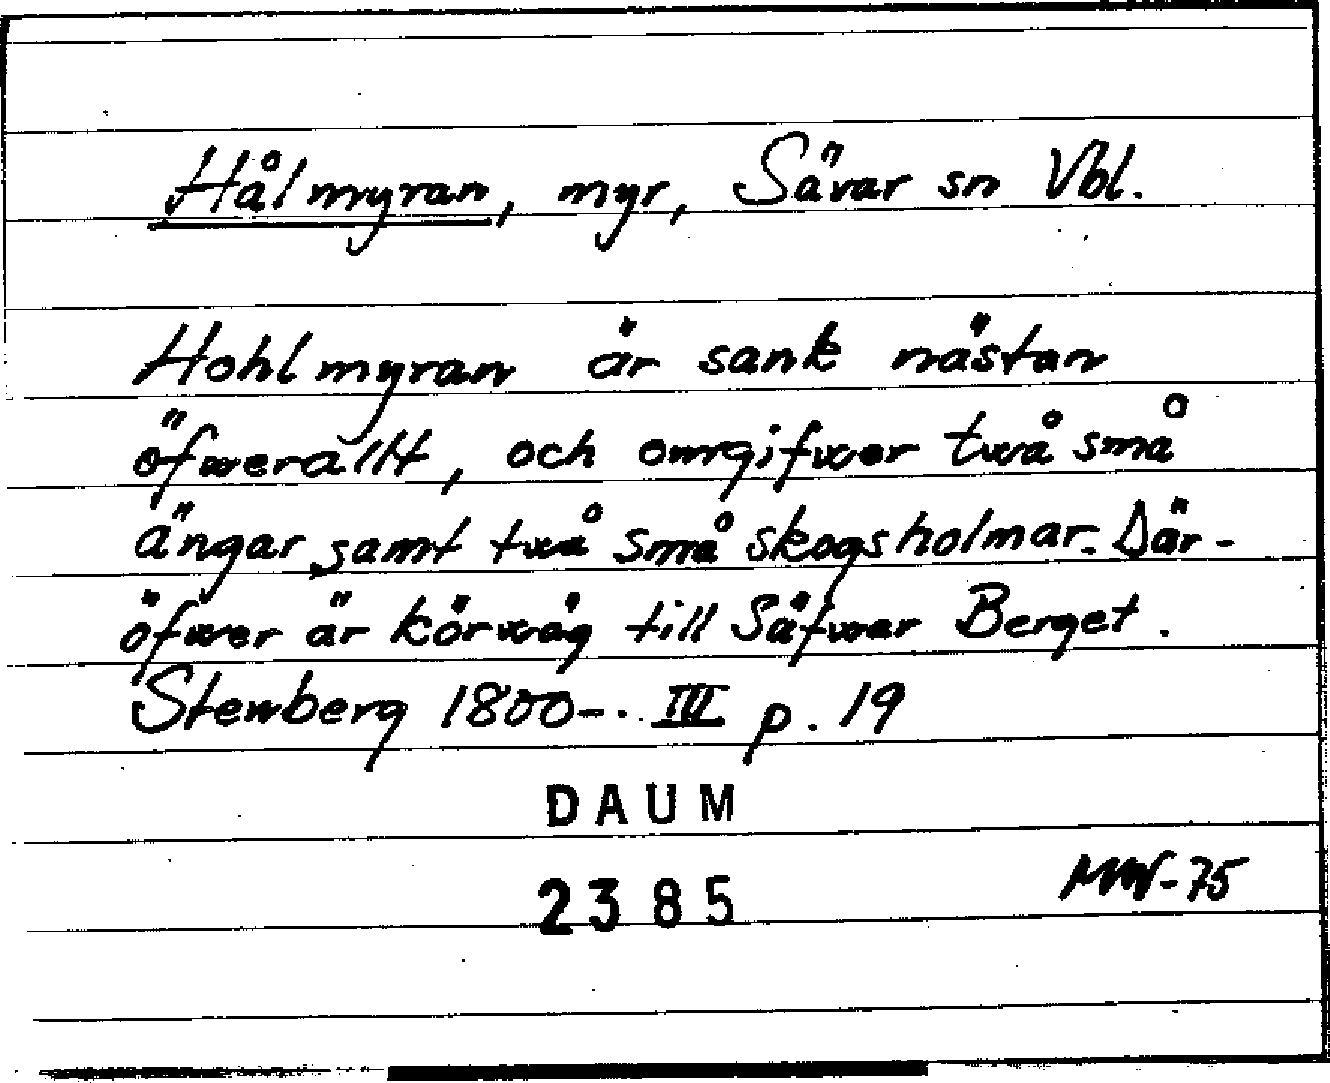 Hålmyran, myr, Sävar sn Vbl.
Hohlmyran är sank nästan
öfwerallt, och omgifwer twå små
ängar samt twå små skogsholmar. Där-
öfwer är körwäg till Säfwar Berget.
Stenberg 1800-. III p. 19
DAUM
2385
MW-75